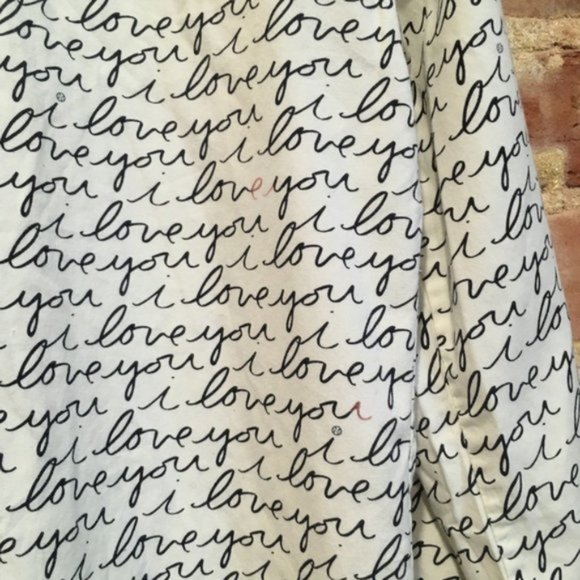 love you i love you
you i love you
i love you i love
love you i love you
you i love you
i love you i love
love you i love you
you i love you
i love you i lo
love you i love you
you i love you
i love you i lo
love you i love y
you i love you
i love you